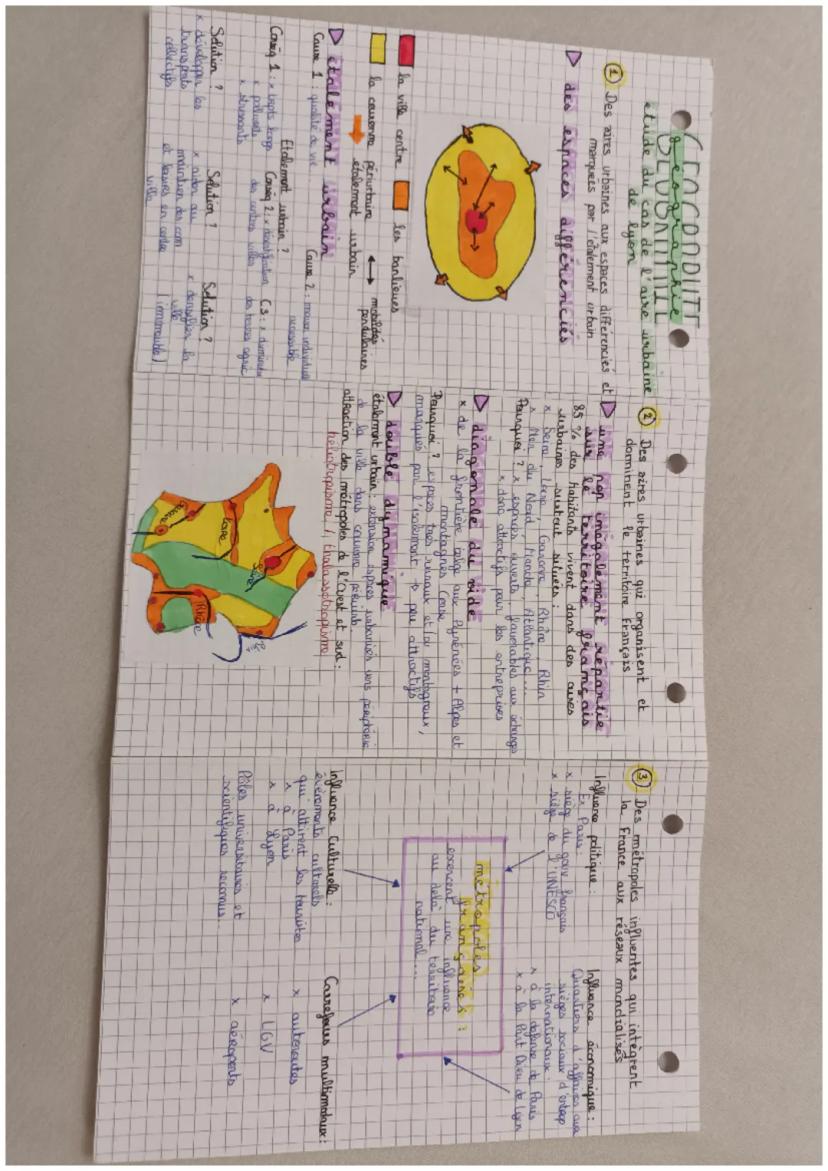 GEOGRAPHIE
géographie
étude du cas de l'aire urbaine
de lyon
① Des aires urbaines aux espaces différenciés et
marquées par l'étalement urbain
des espaces différenciés
la ville centre
les banlieues
la couronne périurbaine
mobilités
pendulaires
étalement urbain
étalement urbain
Cause 1 : qualité de vie
Cause 2 : maison individuelle
accessible
Etalement urbain ?
Conséq 1 : x trajets longs
x polluants
x stressants
Conséq 2 : x désertification
des centres villes
C3 : x diminution
des terres agric
Solution ?
x développer les
transports
collectifs
Solution ?
x aider au
maintien des com
et loisirs en centre
ville
Solution ?
x densifier la
ville
(immeuble)
② Des aires urbaines qui organisent et
dominent le territoire français
une pop inégalement répartie
sur le territoire français
85 % des habitants vivent dans des aires
urbaines surtout situées :
x Seine, Loire, Garonne, Rhône, Rhin
x Mer du Nord, Manche, Atlantique...
Pourquoi ? x espaces ouverts, favorables aux échanges
x donc attractifs pour les entreprises
diagonale du vide
x de la frontière belge aux Pyrénées + Alpes et
montagnes Corse
Pourquoi ? espaces très ruraux et/ou montagneux,
marqués par l'isolement → peu attractifs
double dynamique
étalement urbain : extension espaces urbanisés vers périphérie
de la ville dans couronne périurb.
attraction des métropoles de l'Ouest et sud :
héliotropisme / thalassotropisme
Seine
Loire
Garonne
Rhône
Rhin
③ Des métropoles influentes qui intègrent
la France aux réseaux mondialisés
Influence politique :
Ex Paris :
x siège du gouv français
x siège de l'UNESCO
Influence économique :
Quartiers d'affaires aux
sièges sociaux d'entrep
internationaux :
x à la défense de Paris
x à la Part Dieu de Lyon
métropoles
françaises :
exercent une influence
au delà du territoire
national...
Influence Culturelle :
évènements culturels
qui attirent les touristes
x à Paris
x à Lyon
Pôles universitaires et
scientifiques reconnus
Carrefours multimodaux :
x autoroutes
x LGV
x aéroports